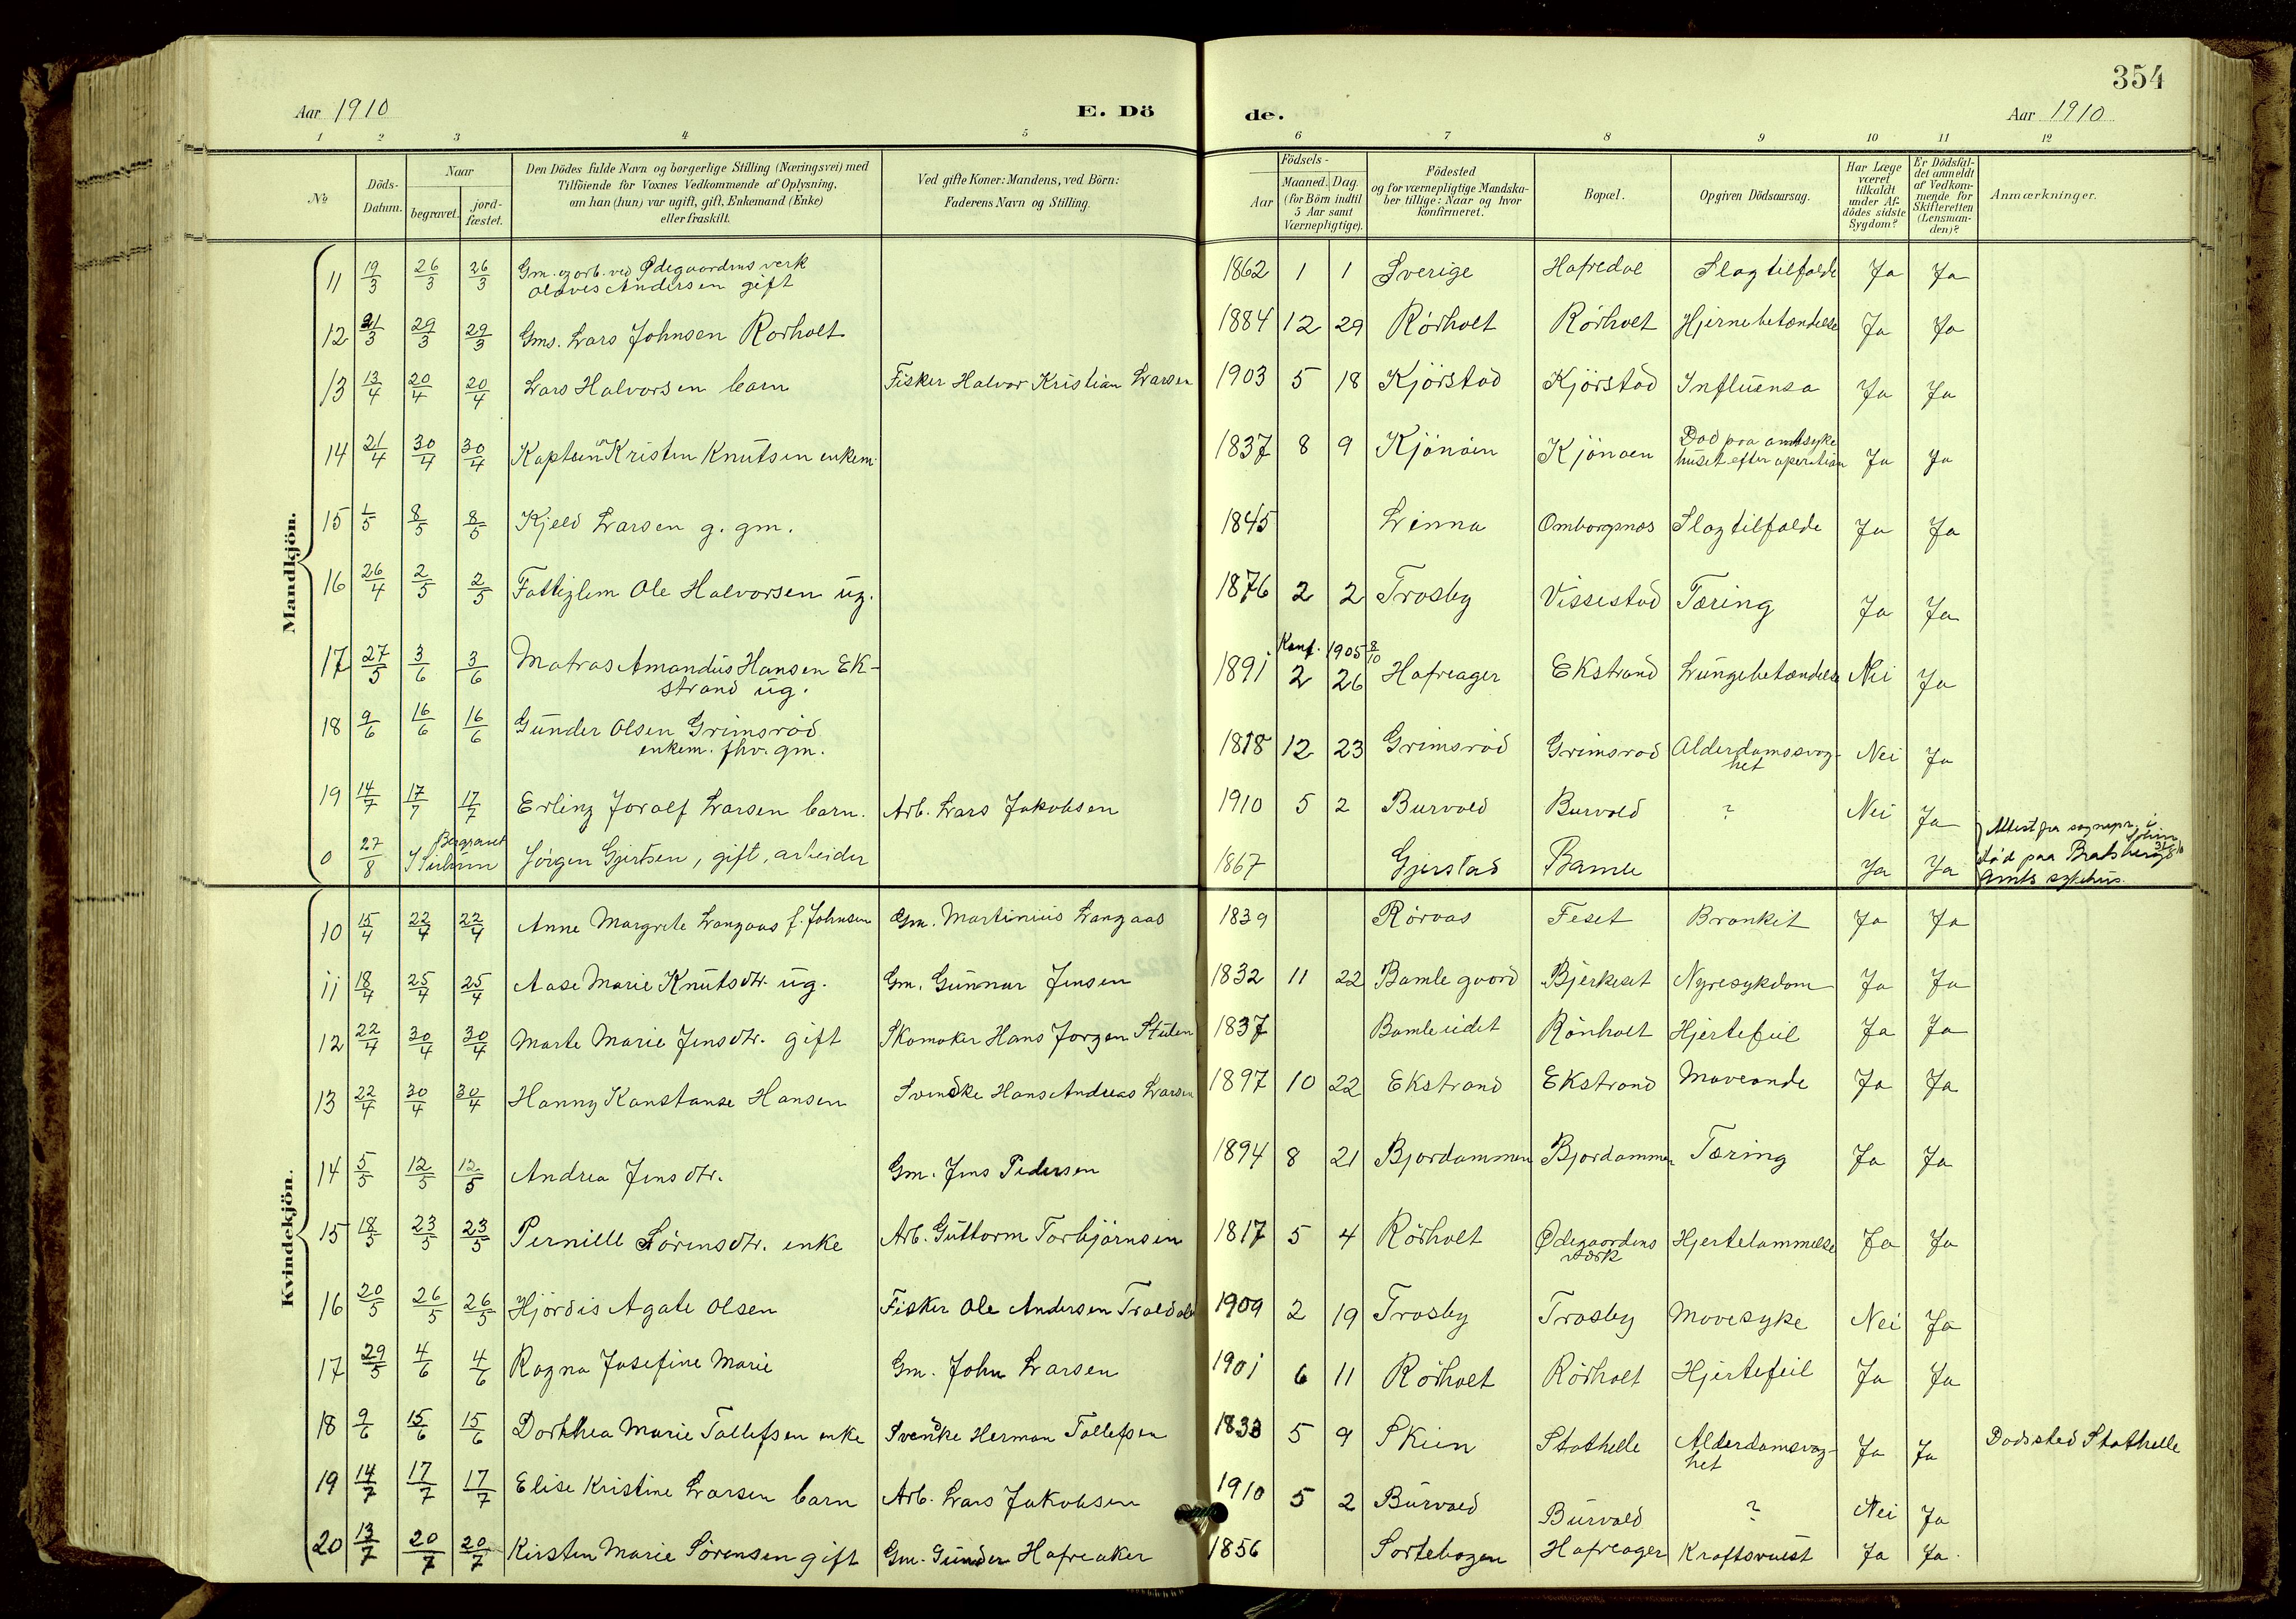 354
Aar 1910 E. Dö de. Aar 1910
1 2 3 4 5 6 7 8 9 10 11 12
No
Döds-Datum.
Naar
begravet.
jord-fæstet.
Den Dödes fulde Navn og borgerlige Stilling (Næringsvei) med
Tilföiende for Voxnes Vedkommende af Oplysning,
om han (hun) var ugift, gift, Enkemand (Enke)
eller fraskilt.
Ved gifte Koner: Mandens, ved Börn:
Faderens Navn og Stilling.
Födsels-
Aar
Maaned. Dag.
(for Börn indtil
5 Aar samt
Værnepligtige).
Födested
og for værnepligtige Mandska-
ber tillige: Naar og hvor
konfirmeret.
Bopæl.
Opgiven Dödsaarsag.
Har Læge
været
tilkaldt
under Af-
dödes sidste
Sygdom?
Er Dödsfal-
det anmeldt
af Vedkom-
mende for
Skifteretten
(Lensman-
den)?
Anmærkninger.
Mandkjön.
11 19/3 26/3 26/3 Gm. og arb. ved Ødegaardens verk
Olaves Andersen gift 1862 1 1 Sverige Hafredal Slagtilfælde Ja Ja
12 21/3 29/3 29/3 Gms. Lars Johnsen Rørholt 1884 12 29 Rørholt Rørholt Hjernebetændelse Ja Ja
13 13/4 20/4 20/4 Lars Halvorsen barn Fisker Halvor Kristian Larsen 1903 5 18 Kjørstad Kjørstad Influensa Ja Ja
14 21/4 30/4 30/4 Kaptein Kristen Knutsen enkem. 1837 8 9 Kjønøen Kjønøen Død paa amtsyke
huset efter operation Ja Ja
15 1/5 8/5 8/5 Kjeld Larsen g. gm. 1845 Linna Omborgsnæs Slagtilfælde Ja Ja
16 26/4 2/5 2/5 Fattiglem Ole Halvorsen ug. 1876 2 2 Trosby Vissestad Tæring Ja Ja
17 27/5 3/6 3/6 Matros Amandus Hansen Ek-
strand ug. Konf. 1905 8/10
1891 2 26 Hafreager Ekstrand Lungebetændelse Nei Ja
18 9/6 16/6 16/6 Gunder Olsen Grimsrød
enkem. fhv. gm. 1818 12 23 Grimsrød Grimsrød Alderdomssvag-
het Nei Ja
19 14/7 17/7 17/7 Erling Joralf Larsen barn. Arb. Lars Jakobsen 1910 5 2 Burvald Burvald ? Nei Ja
0 27/8 Begravet
I Solum Jørgen Gjertsen, gift, arbeider 1867 Gjerstad Bamle Ja Ja Attest fra sognepr. i
Solum
død paa Bratsberg
amts sykehus.
Kvindekjön.
10 15/4 22/4 22/4 Anne Margrete Langaas f. Johnsen Gm. Martinius Langaas 1839 Rørvas Feset Bronkit Ja Ja
11 18/4 25/4 25/4 Aase Marie Knutsdtr. ug. Gm. Gunnar Jensen 1832 11 22 Bamle gaard Bjerkeset Nyresykdom Ja Ja
12 22/4 30/4 30/4 Marte Marie Jensdtr. gift Skomaker Hans Jørgen Stulen 1837 Bamle eidet Rønholt Hjertefeil Ja Ja
13 22/4 30/4 30/4 Hanny Konstanse Hansen Svenske Hans Andreas Larsen 1897 10 22 Ekstrand Ekstrand Maveonde Ja Ja
14 5/5 12/5 12/5 Andrea Jensdtr. Gm. Jens Pedersen 1894 8 21 Bjordammen Bjordammen Tæring Ja Ja
15 18/5 23/5 23/5 Pernille Sørensdtr. enke Arb. Guttorm Torbjørnsen 1817 5 4 Rørholt Ødegaardens
værk Hjertelammelse Ja Ja
16 20/5 26/5 26/5 Hjørdis Agate Olsen Fisker Ole Andersen Traldal 1909 2 19 Trosby Trosby Mavesyke Nei Ja
17 29/5 4/6 4/6 Ragna Josefine Marie Gm. John Larsen 1901 6 11 Rørholt Rørholt Hjertefeil Ja Ja
18 9/6 15/6 15/6 Dorthea Marie Tollefsen enke Svenke Herman Tollefsen 1833 5 9 Skien Stathelle Alderdomsvag-
het Ja Ja Dødssted Stathelle
19 14/7 17/7 17/7 Elise Kristine Larsen barn Arb. Lars Jakobsen 1910 5 2 Burvald Burvald ? Nei Ja
20 13/7 20/7 20/7 Kirsten Marie Sørensen gift Gm. Gunder Hafreaker 1856 Sortebogen Hafreager Kraftsvulst Ja Ja.